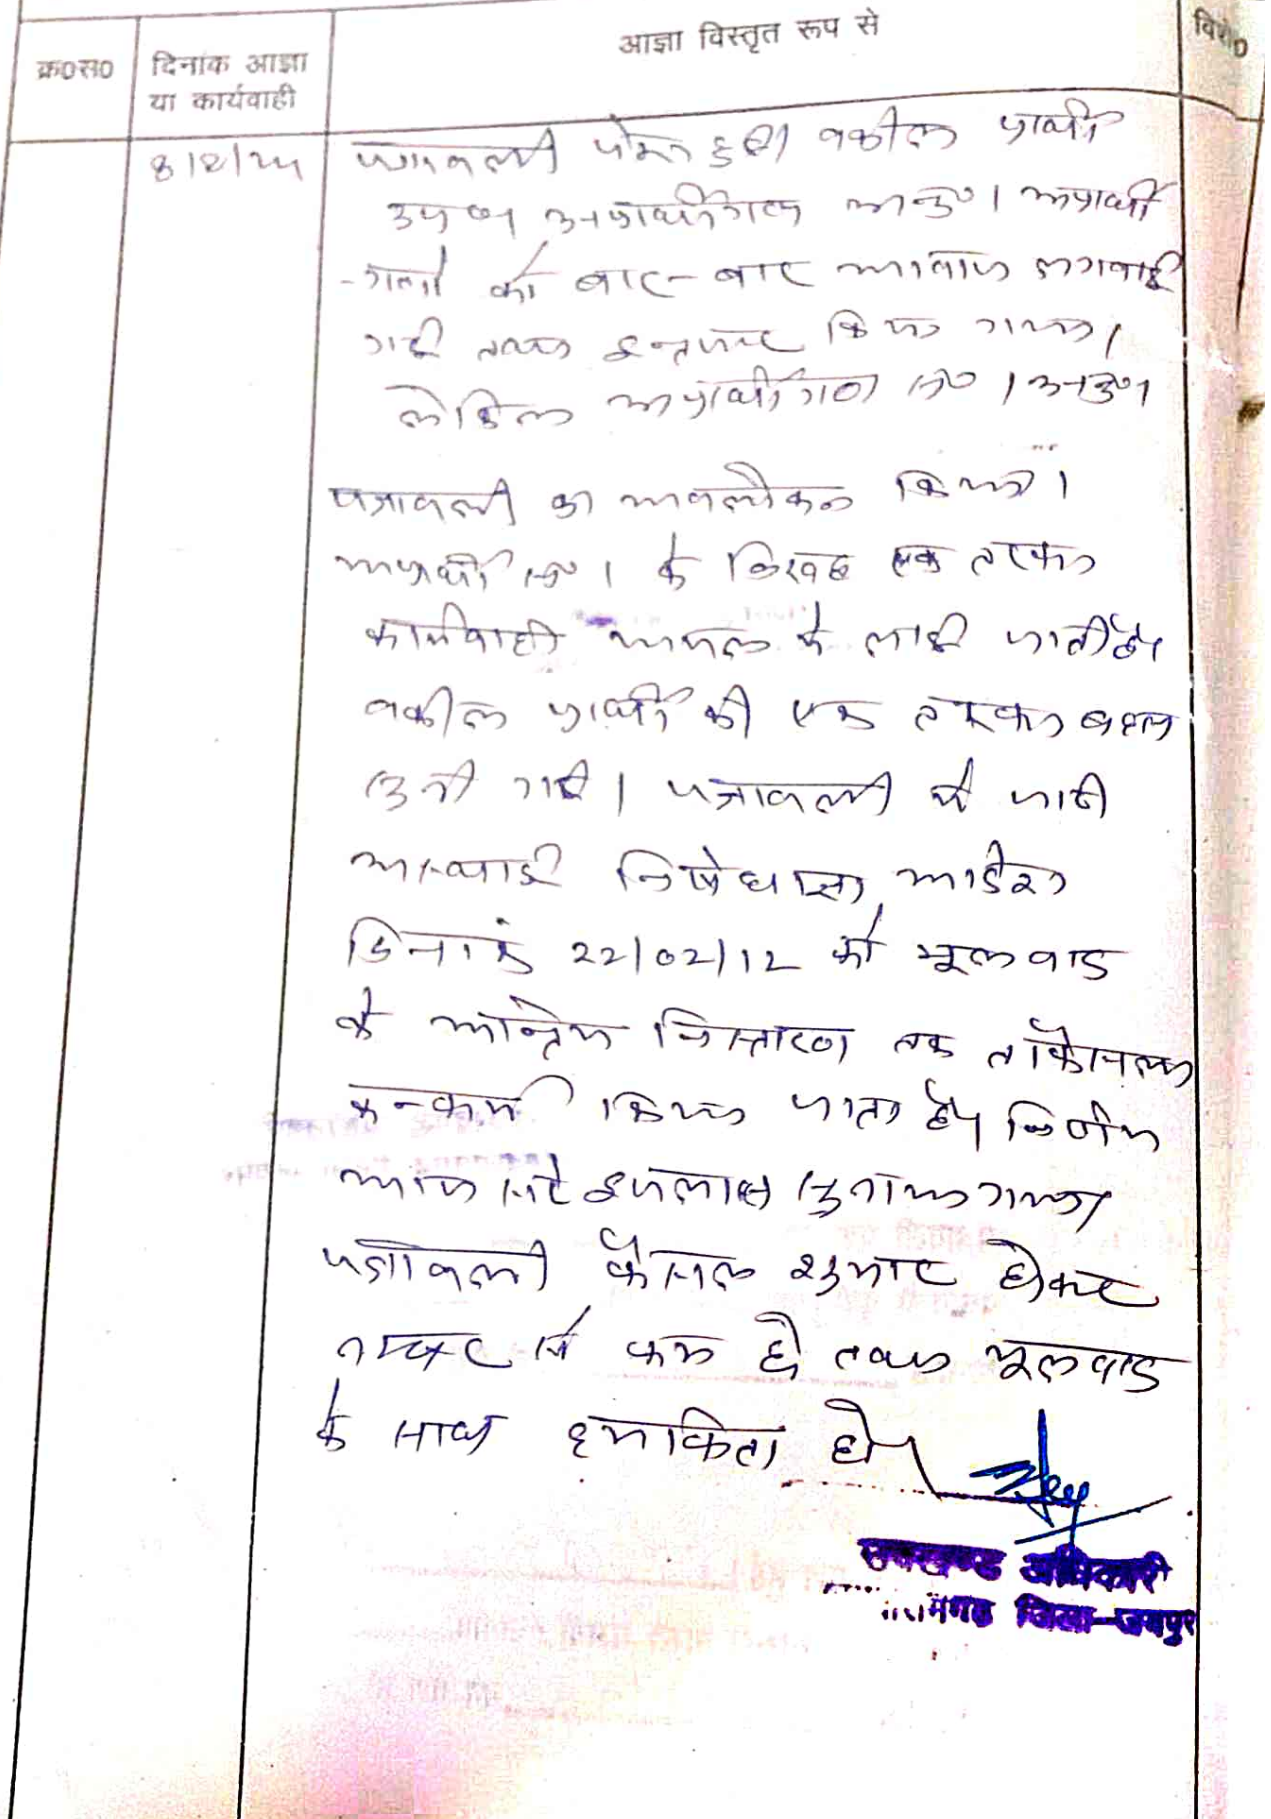 क्र०स०
दिनांक आज्ञा
या कार्यवाही
आज्ञा विस्तृत रूप से
पत्रावली पेश हुयी वकील प्रार्थी
उप० अप्रार्थीगण अनु०। अप्रार्थी
-गणों को बार-बार आवाज लगवाई
गई तथा इन्तजार किया गया।
लेकिन अप्रार्थीगण
पत्रावली का अवलोकन किया।
अप्रार्थी सं० 1 के विरूद्ध एक तरफा
कार्यवाही अमल में लाई जाती है।
वकील प्रार्थी की एक तरफा बहस
सुनी गई। पत्रावली में जारी
अस्थाई निषेधाज्ञा आदेश
दिनांक 22/02/12 को मूलवाद
के अन्तिम निस्तारण तक ताफैसला
कन्फर्म किया जाता है। निर्णय
आज सरे इजलास सुनाया गया।
पत्रावली फैसल शुमार होकर
नम्बर से कम हो तथा मूलवाद
के साथ हमकिता हो।
उपखण्ड अधिकारी
जिला-जयपुर